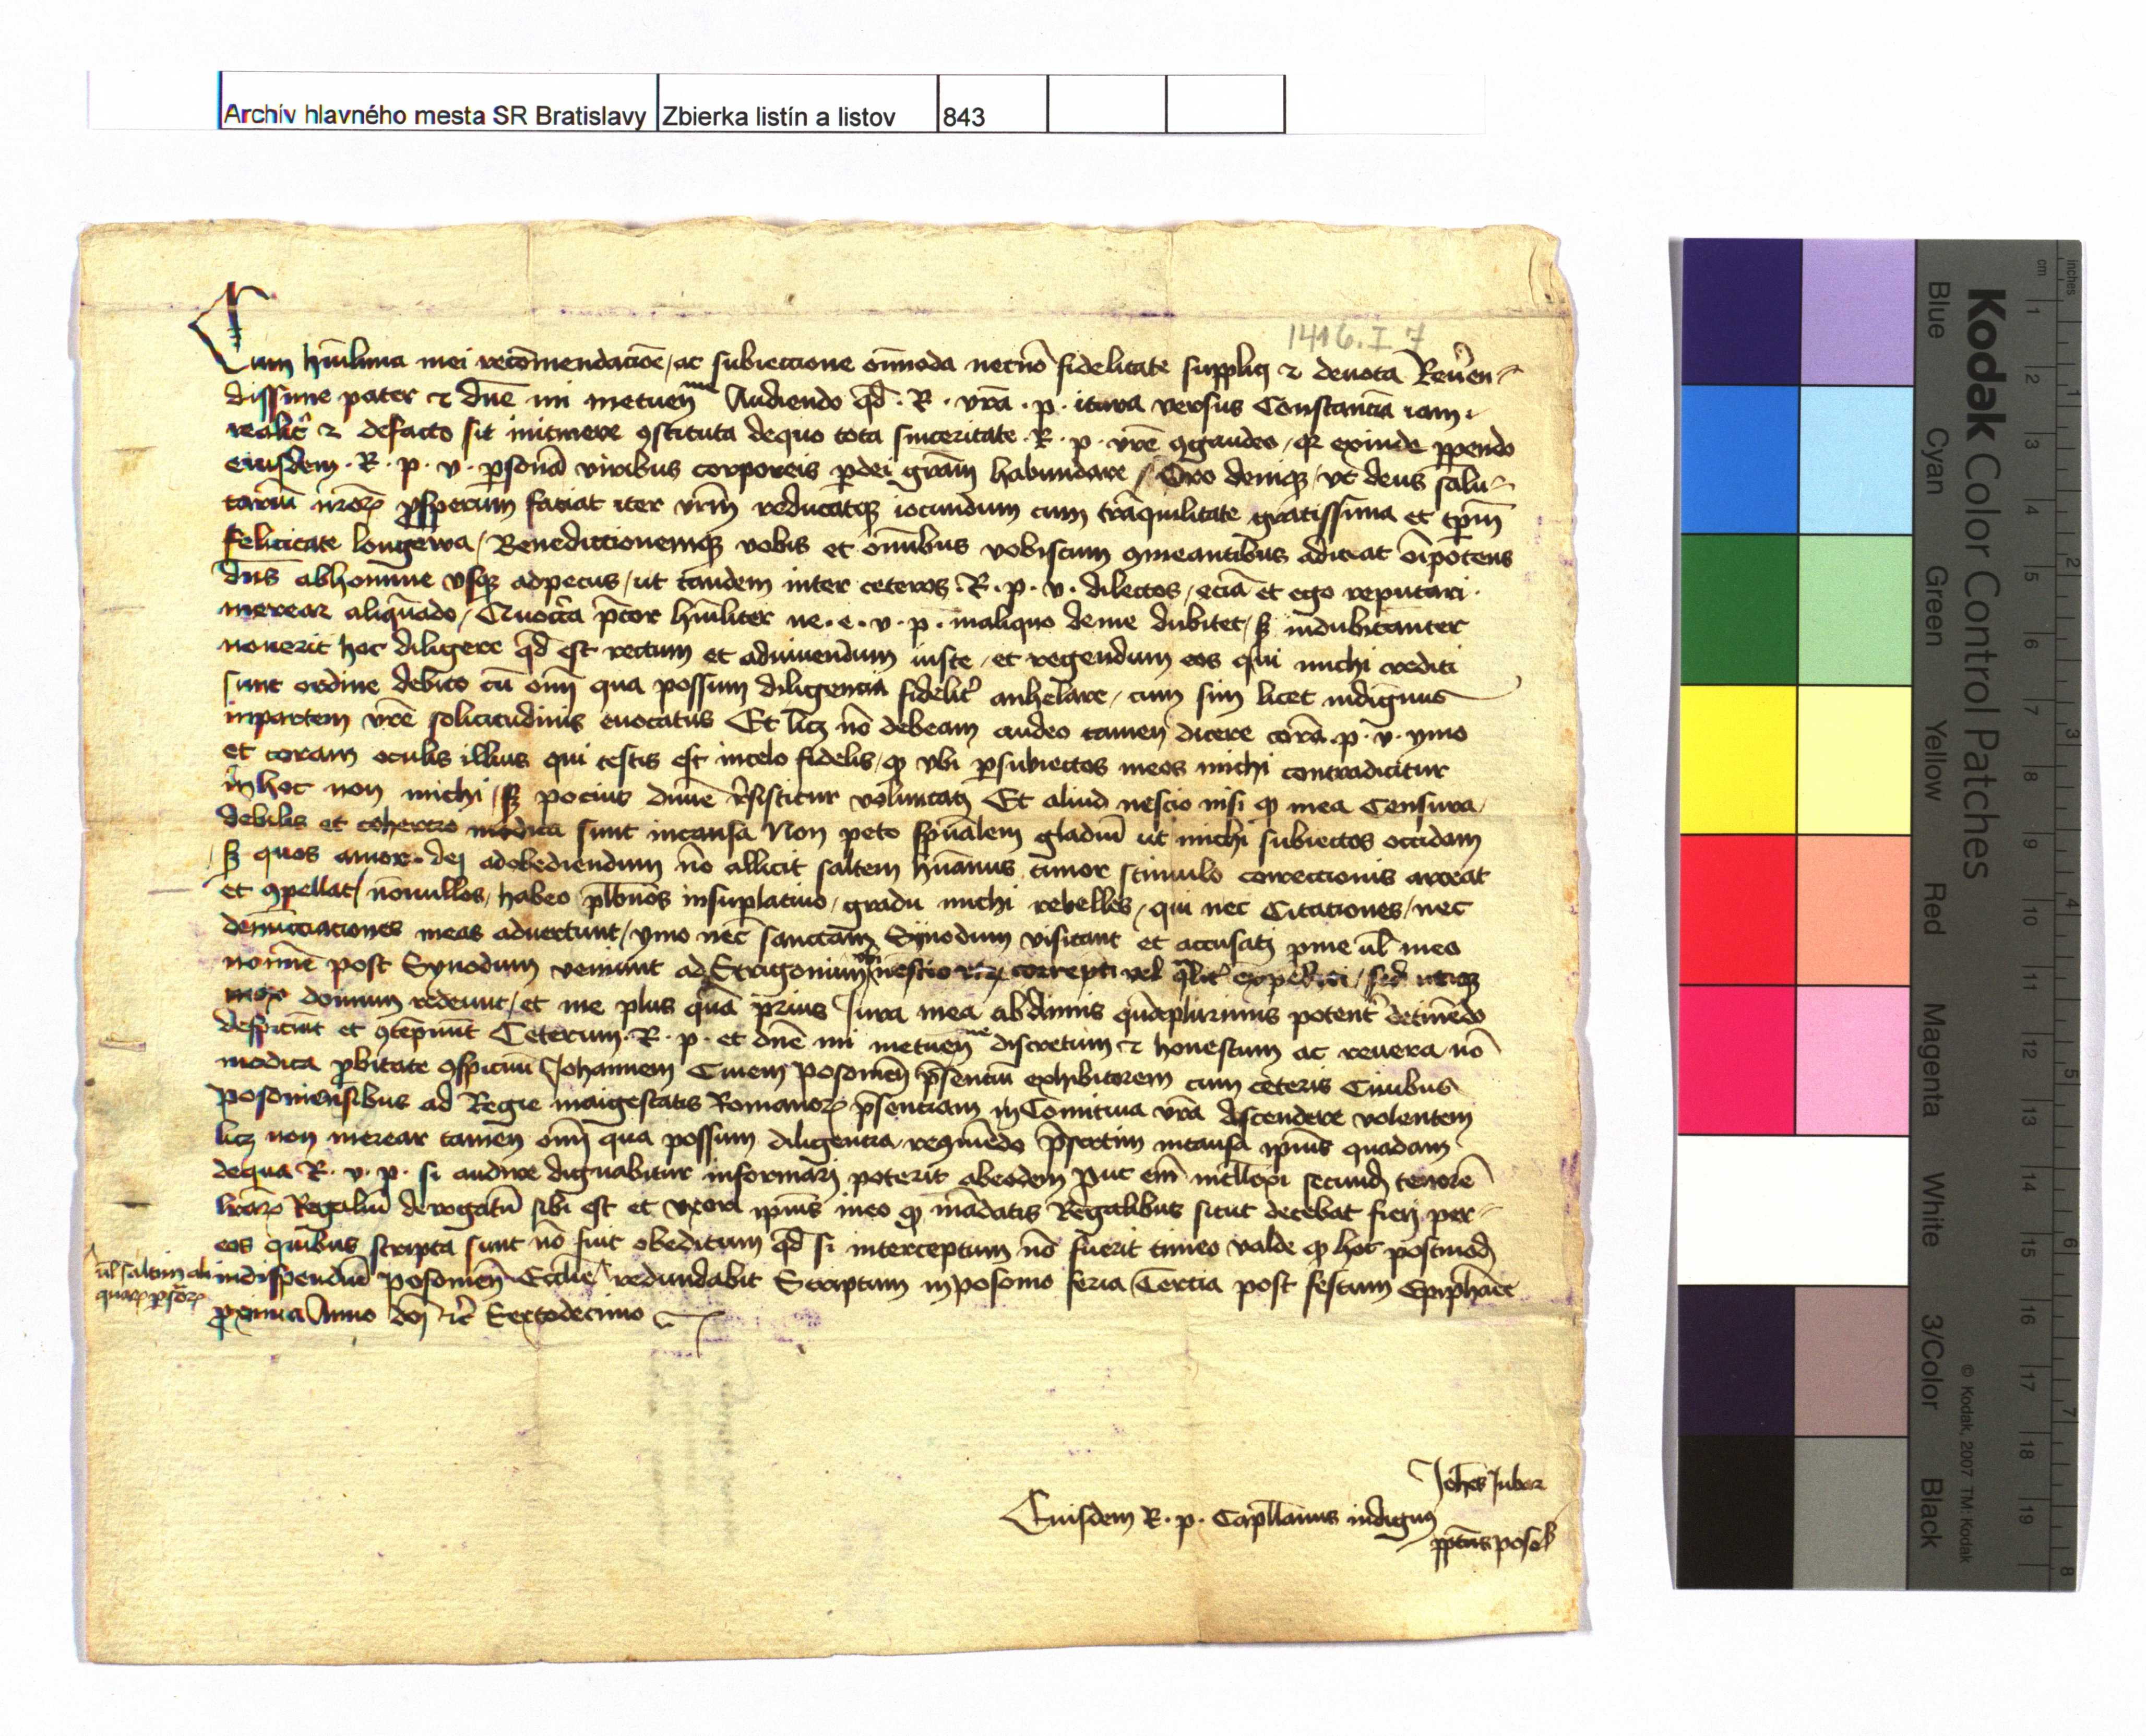 Archív hlavného mesta SR Bratislavy Zbierka listín a listov 843
1416. I 7
Cum hūilima mei recōmendacōe, ac subieccione ōmoda necnō fidelitate suppliꝯ ⁊ deuota Reuͥen-
dissime pater ⁊ dn̄e mi metuenͫͤ Audiendo qd̄ . R . vr̄a . p . itura versus Constanciā iam
realit̉ ⁊ defacto sit initinere ꝯstituta dequo tota sinceritate . R . p . vr̄e ꝯgaudeo, qꝛ exinde ꝑpendo
eiusdem . R . p . v . ꝑsonā viribus corporeis ꝑdei gr̄am habundare / Oro deniqꝫ, vt deus salu-
tariū nr̄oꝝ ꝓsperum faciat iter vrm̄ reducatqꝫ iocundum cum tr̄aquilitate gratissima et tpm̄
felicitate longewa, Benedictionemqꝫ vobis et om̄ibus vobiscum ꝯmeantibus adiciat oīpotens
dn̄s abhomine vsqꝫ adpecus, ut tandem inter ceteros . R . p . v . dilectos, eciā et ego reputari
merear aliqn̄ado, Quocͥca p̄cor hūiliter ne . e . v . p . inaliquo deme dubitet, sꝫ indubitanter
nouerit hoc diligere qd̄ est rectum et adiuuendum iuste, et regendum eos qui michi crediti
sunt ordine debito cū om̄i qua possum diligencia fidelit̉ anhelare, cum sim licet indignus
inpartem vr̄e solicitudinis euocatus Et lic̄ꝫ nō debeam audeo tamen dicere corā . p . v . ymo
et coram oculis illius qui testis est incelo fidelis, qꝫ vbi ꝑsubiectos meos michi contradicitur
inhoc non michi, sꝫ pocius diuīe r̉sistitur voluntatꝭ Et aliud nescio nisi qꝫ mea Censura,
debilis et cohercio modica sunt incausa Non peto sp̄ualem gladiū ut michi subiectos occidam
sꝫ quos amor dei adobediendum nō allicit saltem hūanus timor stimulo correccionis arceat
et ꝯpellat, nōnullos, habeo pl̄bnōs insuꝑlatiuo, gradu michi rebelles, qui nec Citationes, nec
denūcciaciones meas aduertunt, ymo nec sanctam Synodum visitant et accusatꝭ ꝑme ul̄ meo
noīne post Synodum veniunt ad Strigonium nescio correpti vel qͣlit̉ expediti, sed utiqꝫ
mox domum redeunt, et me plus quā prius Iura mea abdīnis quāplurimis potent̉ detinēdo
despiciūt et ꝯtepnūt Ceterum . R . p . et dn̄e mi metuenͫͤ discretum ⁊ honestum ac reuera nō
modica ꝓbitate ꝯspicuū Johannem Ciuem Posonien̄ p̄sentiū exhibitorem cum ceteris Ciuibus
Posoniensibus ad Regie maigestatis Romanoꝝ p̄sentiam inComitiua vr̄a descendere volentem
licꝫ non merear tamen om̄i qua possum diligentia recōmēdo p̄sertim incausa ip̄ius quadam
dequa R . v . p . si audire dignabitur informari poterit abeodem Put em̄ intellexi secund̄ tenorē
lr̄aꝝ Regaliū derogatū sibi est et vxori ip̄ius ineo qꝫ mādatis Regalibus sicut decebat fieri per-
eos quibus scripta sunt nō fuit obeditum qd̄ si interceptum nō fuerit timeo valde qꝫ hoc postmod̄
ul̄ saltim ali
quaꝝ ꝑsōꝝ
indispendiū Posonien̄ Ecclīe redundabit Scriptum inPosonio feria Tercia post festum Epiphaīe
ꝓxima Anno dn̄i ⁊c̄ Sextodecimo
Joh̄es
Eiusdem R . p . Capellanus indignꝯ